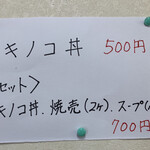 キノコ丼 500円
セット>
キノコ丼.焼売(2ヶ).スープ
700円